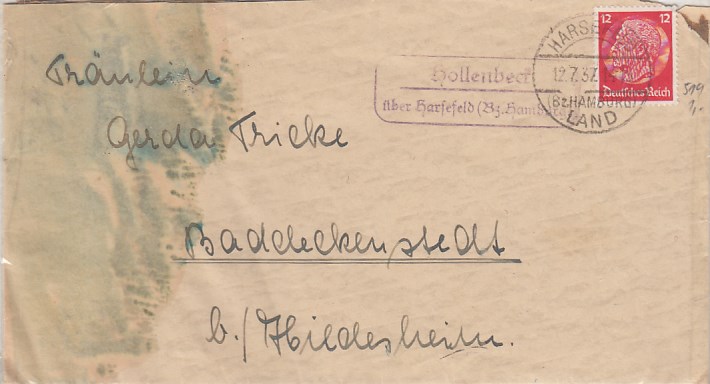 12 12
Deutsches Reich
HARSEFELD
12.7.37
(Bz.HAMBURG)
LAND
Hollenbeck
über Harsefeld (Bz. Hamburg)
519
1,-
Fräulein
Gerda Fricke
Baddeckenstedt
b./Hildesheim.